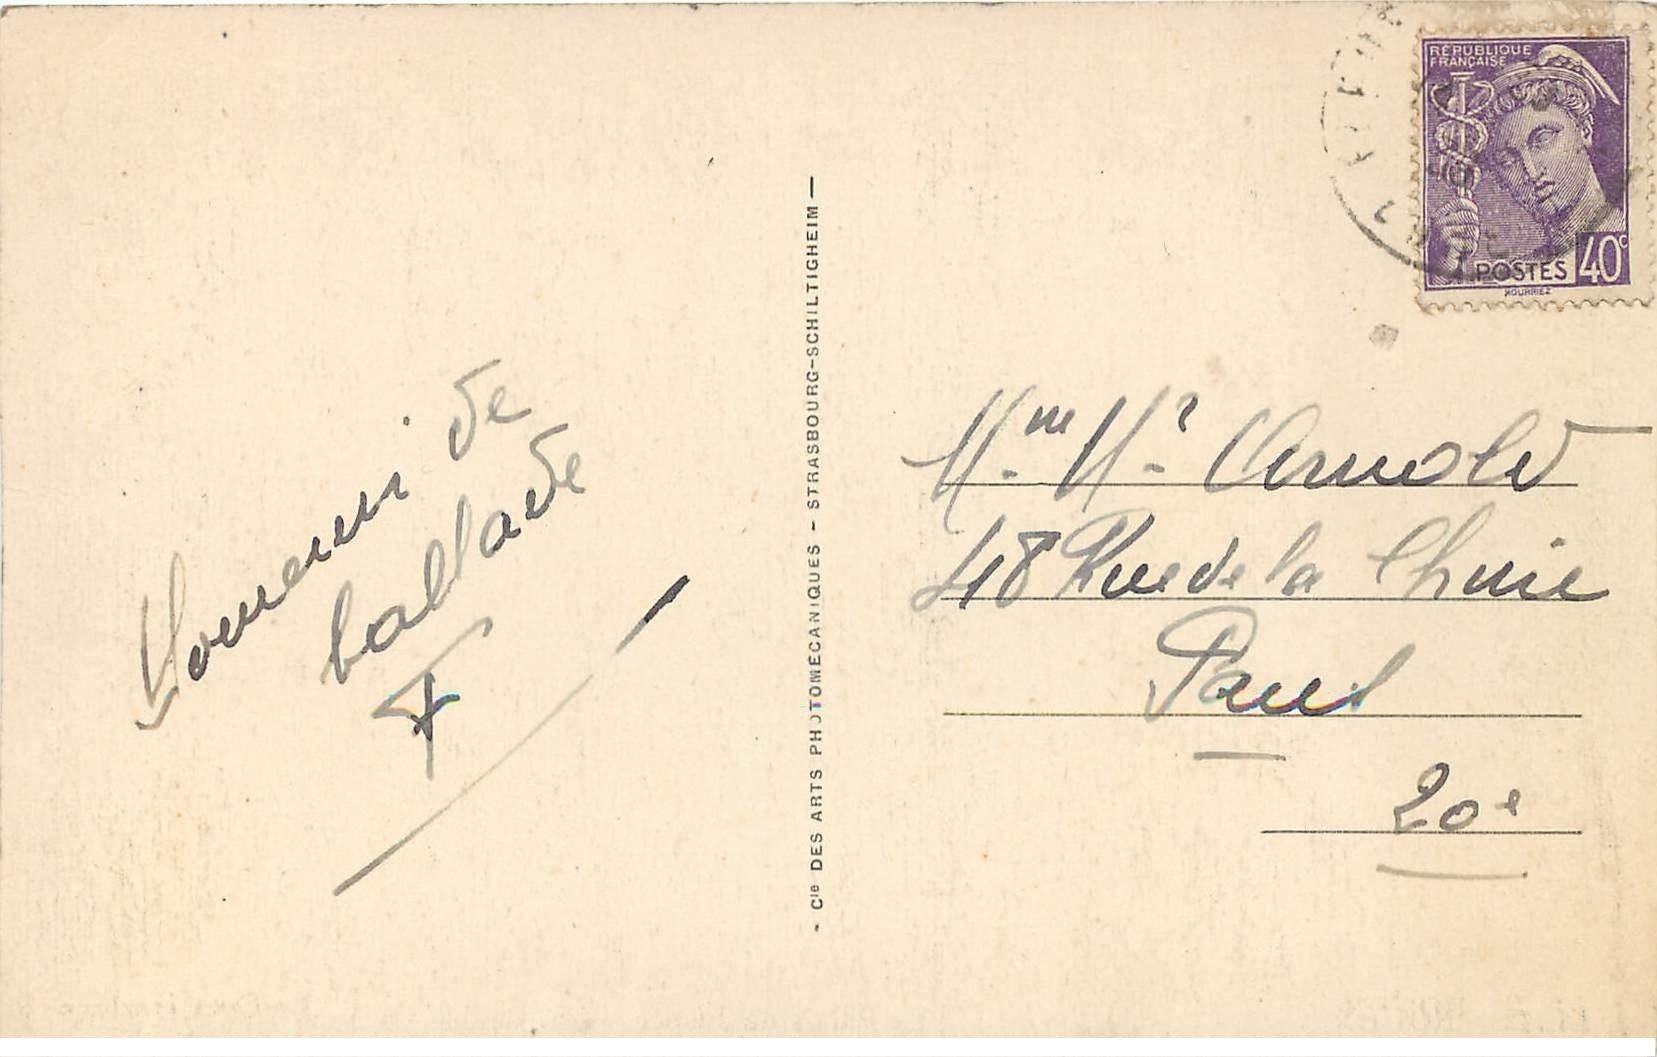 Souvenir de
ballade
- Cie DES ARTS PHOTOMÉCANIQUES - STRASBOURG-SCHILTIGHEIM -
RÉPUBLIQUE
FRANÇAISE
POSTES 40c
HOURRIEZ
Mme Mr Arnold
48 Rue de la Chine
Paris
20e